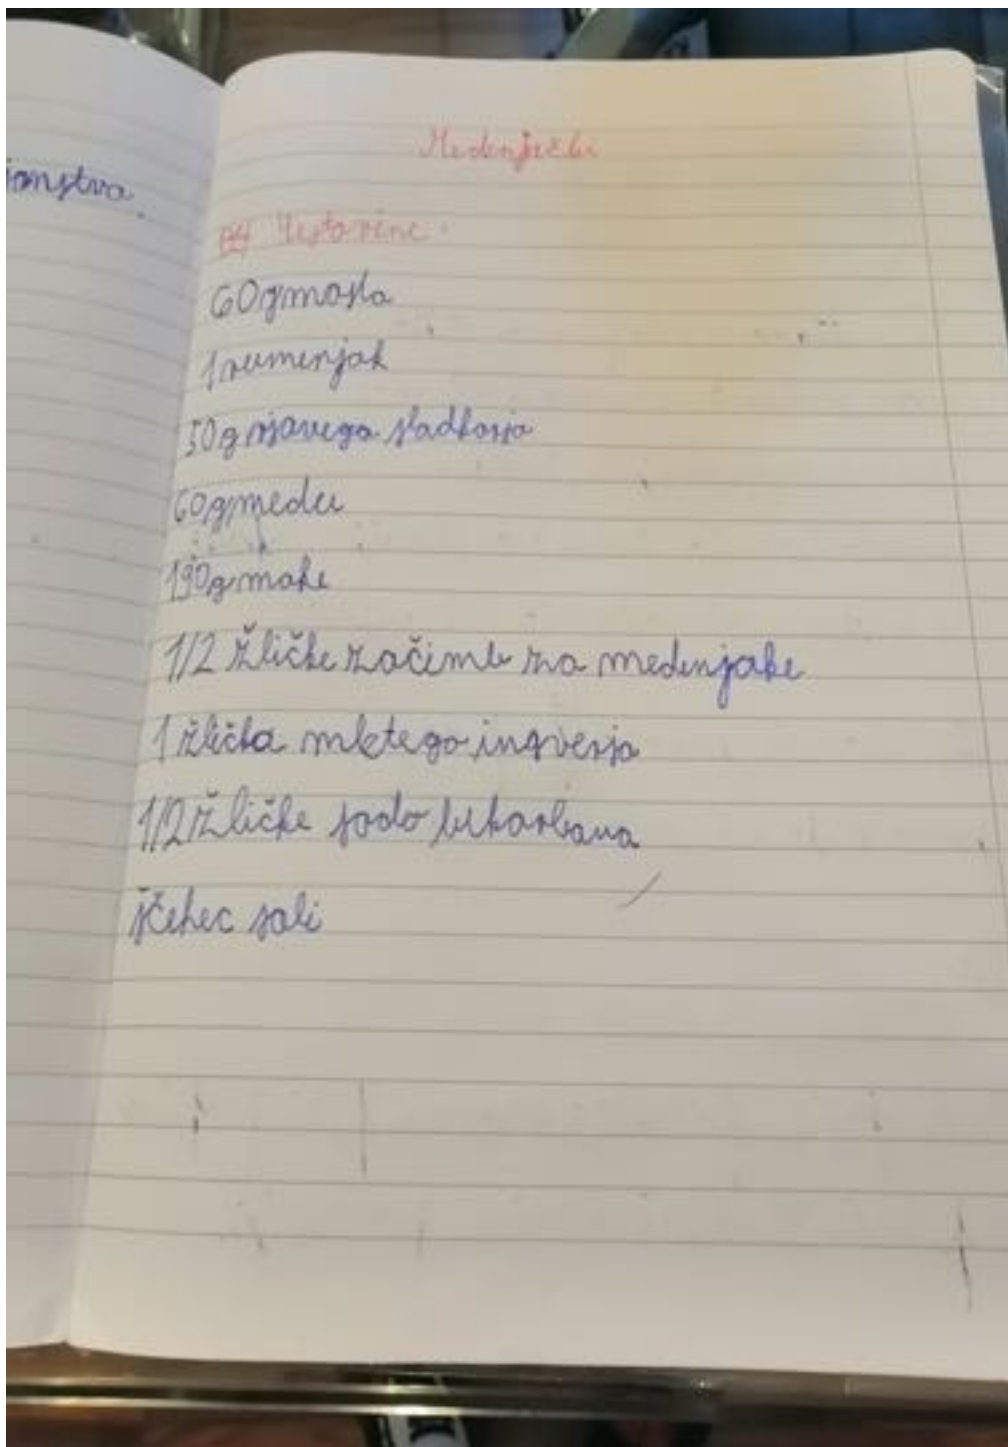 janstva.
Medenjački
Sestavine:
60g masla
1 rumenjak
50g rjavega sladkorja
60g medu
190g moke
1/2 žličke začimb za medenjake
1 žlička mletega ingverja
1/2 žličke sodo bikarbona
ščepec soli